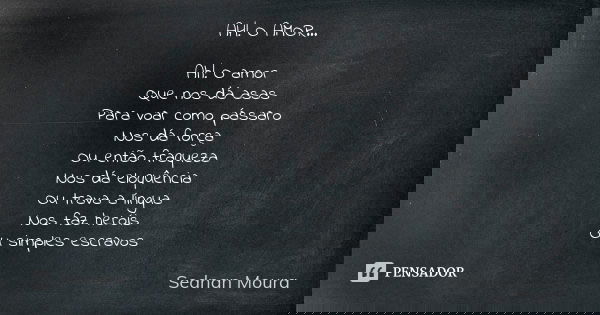 AH! O AMOR...
AH! O amor
Que nos dá asas
Para voar como pássaro
Nos dá força
Ou então fraqueza
Nos dá eloquência
Ou trava a língua
Nos faz heróis
Ou simples escravos
Sednan Moura
PENSADOR